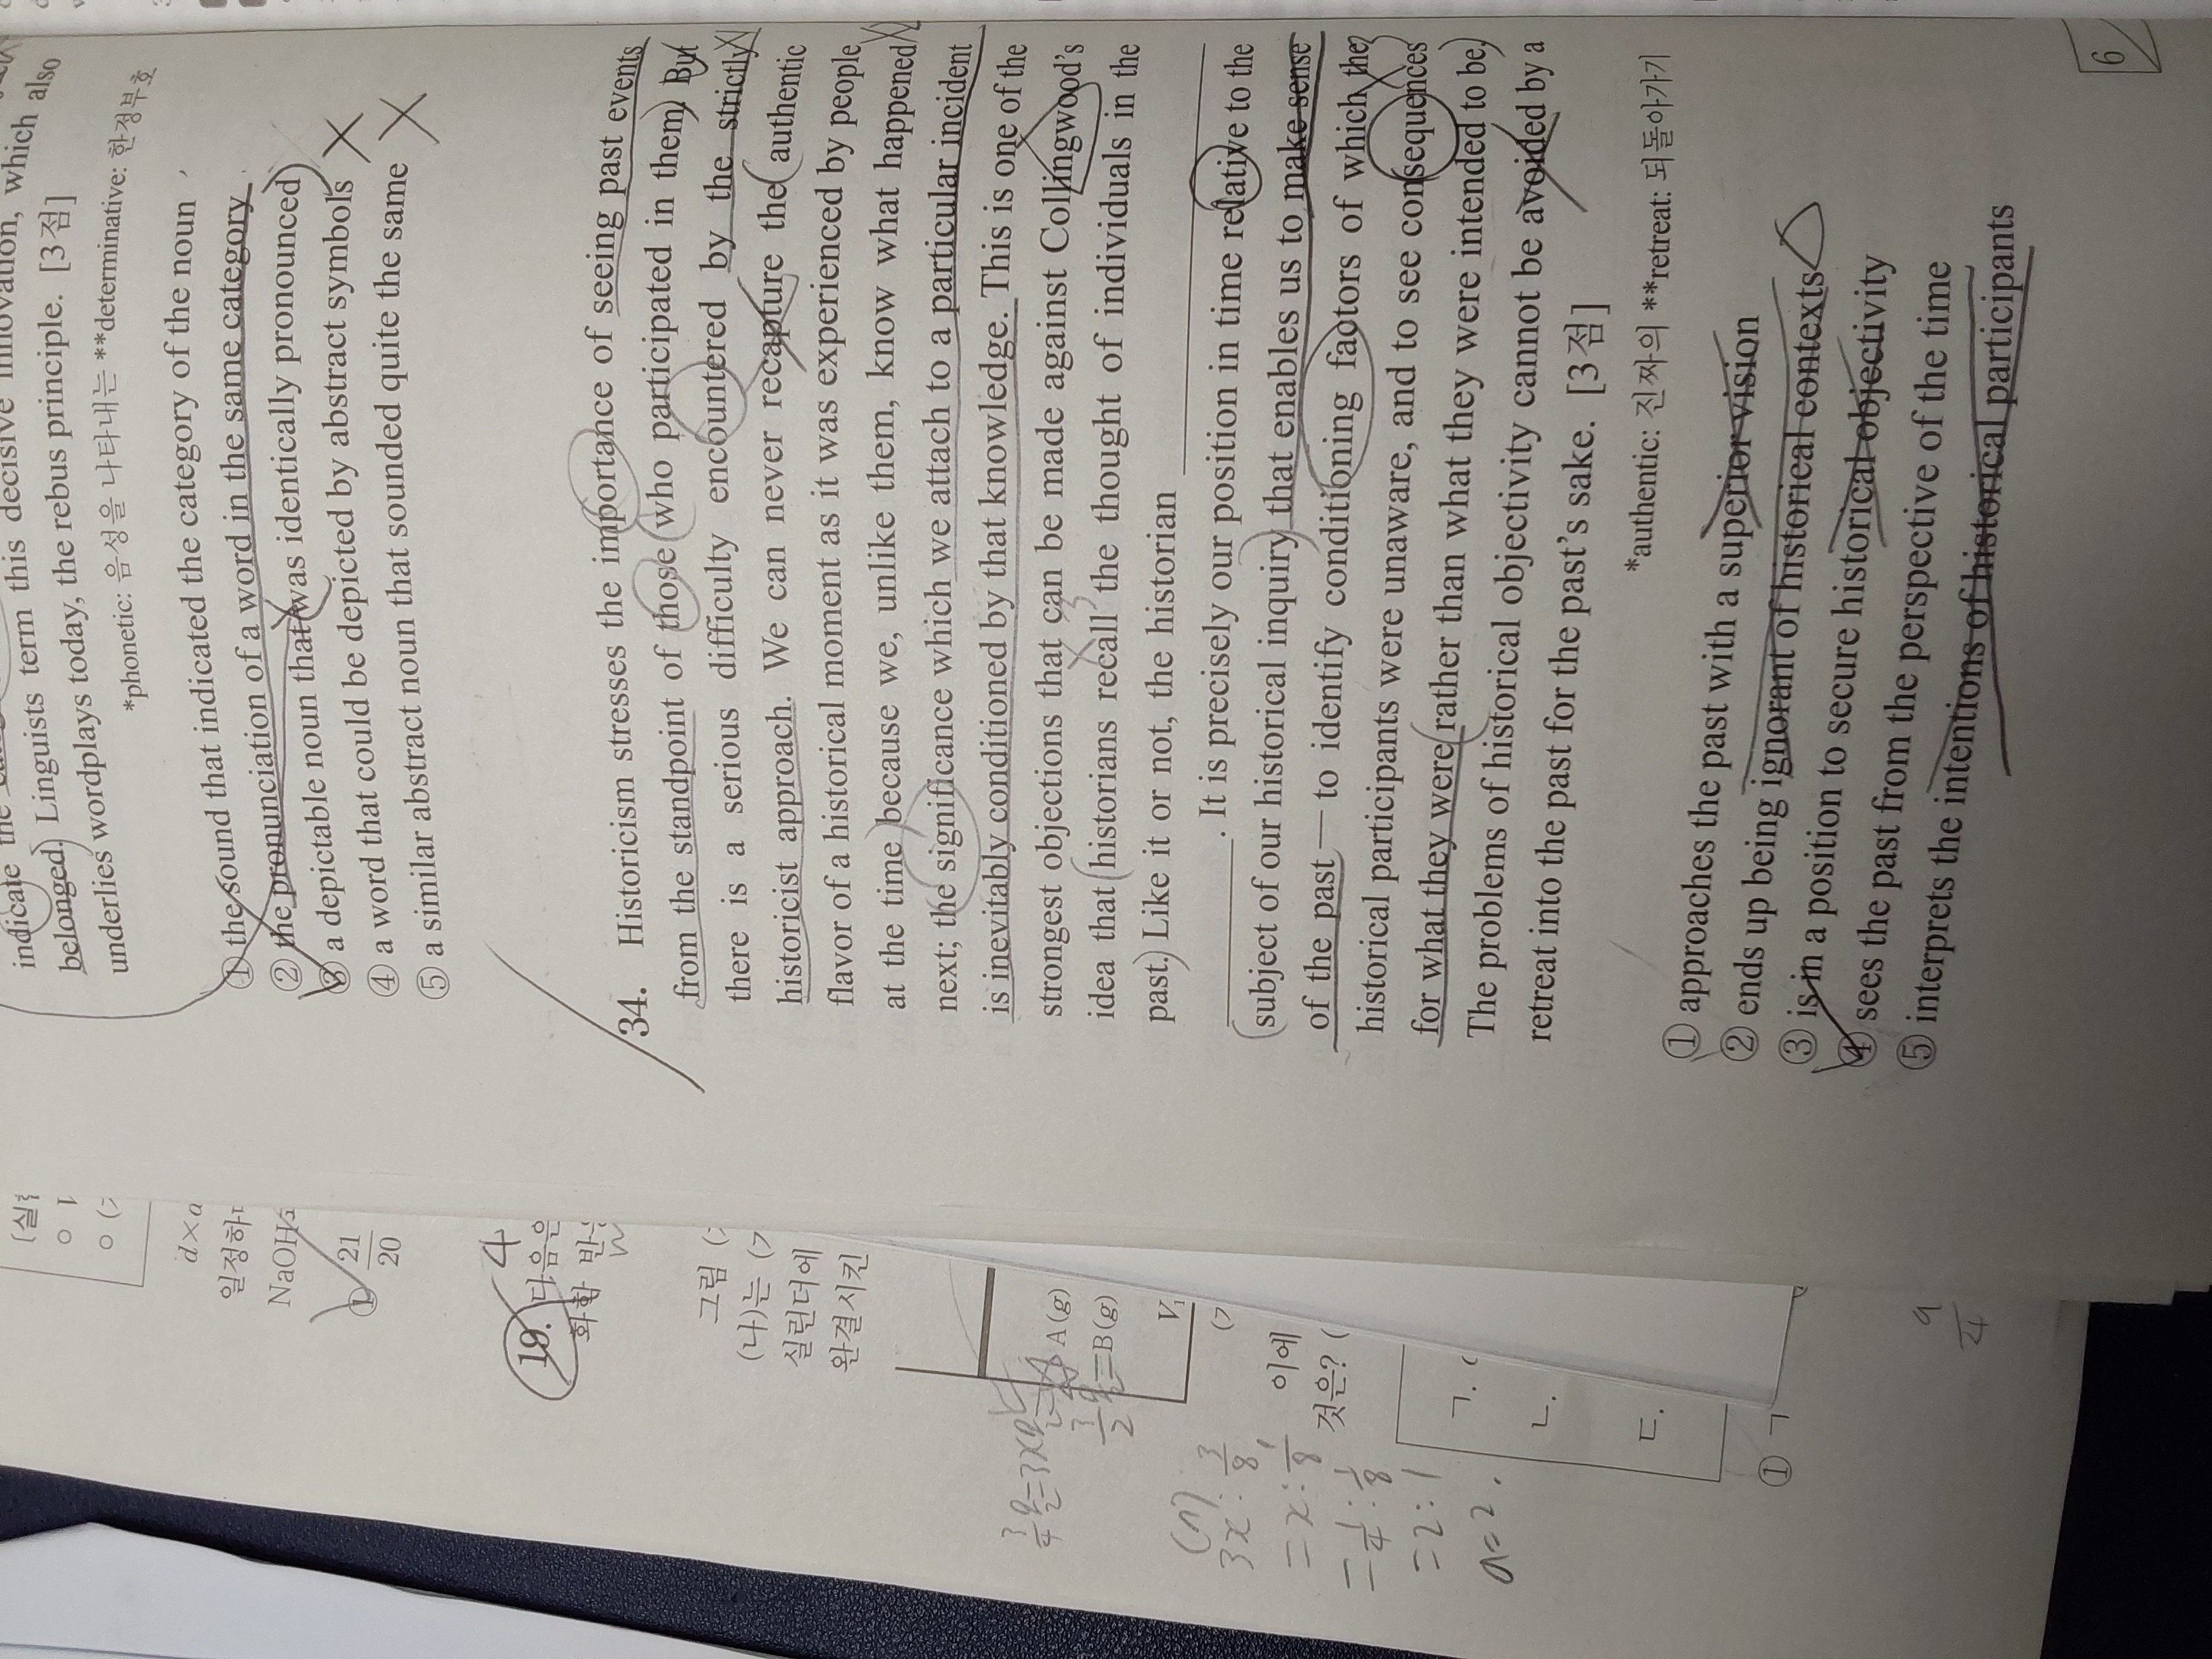 indicate the
term this decisive innovation, which also
belonged. Linguists
underlies wordplays today, the rebus principle. [3점]
*phonetic: 음성을 나타내는 **determinative: 한정부호
① the sound that indicated the category of the noun
② the pronunciation of a word in the same category
③ a depictable noun that was identically pronounced
④ a word that could be depicted by abstract symbols
⑤ a similar abstract noun that sounded quite the same
34. Historicism stresses the importance of seeing past events
from the standpoint of those who participated in them. But
there is a serious difficulty encountered by the strictly
historicist approach. We can never recapture the authentic
flavor of a historical moment as it was experienced by people
at the time because we, unlike them, know what happened
next; the significance which we attach to a particular incident
is inevitably conditioned by that knowledge. This is one of the
strongest objections that can be made against Collingwood's
idea that historians recall the thought of individuals in the
past. Like it or not, the historian
. It is precisely our position in time relative to the
subject of our historical inquiry that enables us to make sense
of the past — to identify conditioning factors of which the
historical participants were unaware, and to see consequences
for what they were rather than what they were intended to be.
The problems of historical objectivity cannot be avoided by a
retreat into the past for the past's sake. [3점]
*authentic: 진짜의 **retreat: 되돌아가기
① approaches the past with a superior vision
② ends up being ignorant of historical contexts
③ is in a position to secure historical objectivity
④ sees the past from the perspective of the time
⑤ interprets the intentions of historical participants
6
[실
d×a
일정하
NaOH
① 21/20
4
19. 다음은
화학 반
그림 (
(나)는 (
실린더에
완결시킨
A(g)
B(g)
V₁
이에
것은? (
ㄱ.
ㄴ.
ㄷ.
① ㄱ
3x : 3/8
= x : 1/8
= 1/4 : 1/8
= 2 : 1
a=2.
9/4